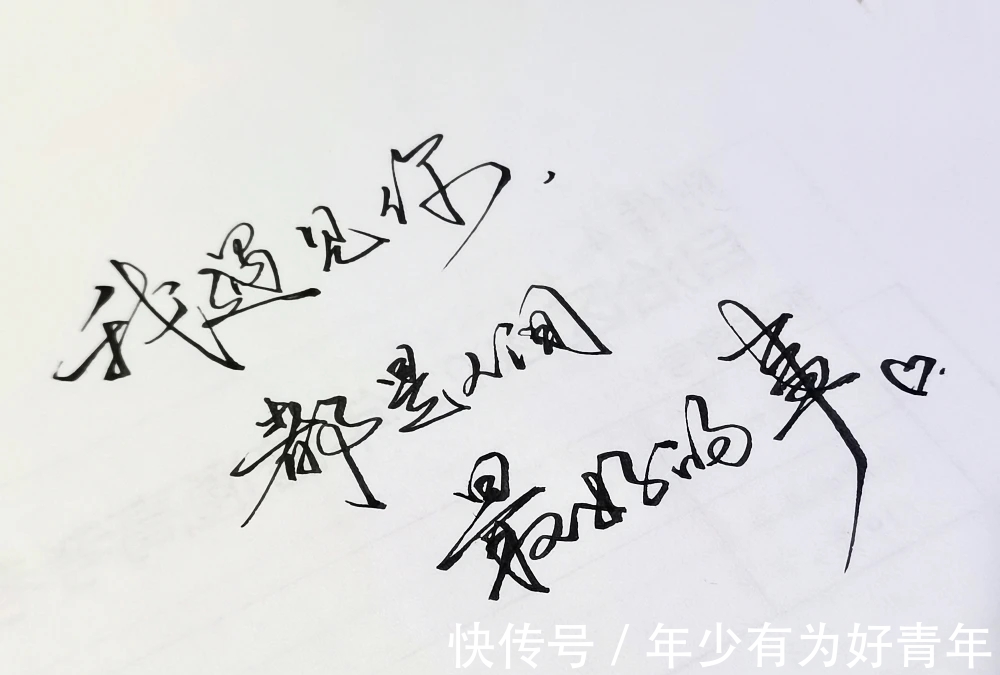 我遇见你，
都是人间
最好的事♡.
快传号 / 年少有为好青年